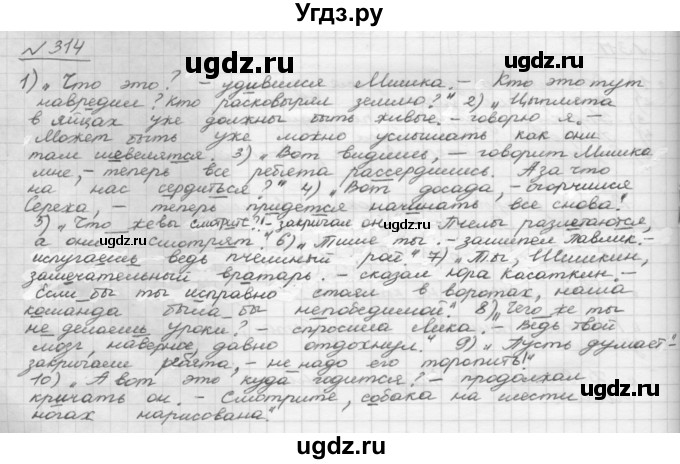 Угдз.ру
№ 314
1) „Что это? – удивился Мишка. – Кто это тут
навредил? Кто расковырял землю?" 2) „Цыплята
в яйцах уже должны быть живые. – говорю я. –
Может быть уже можно услышать как они
там шевелятся. 3) „Вот видишь, – говорит Мишка
мне, – теперь все ребята рассердились. А за что
на нас сердиться?" 4) „Вот досада, – огорчился
Сереха, – теперь придется начинать все снова!
5) „Что же вы смотрите?! – закричал он. – Пчелы разлетаются,
а они смотрят." 6) „Тише ты. – зашипел Павлик. –
испугаешь ведь пчелиный рой" 7) „Ты, Шишкин,
замечательный вратарь. – сказал Юра Касаткин. –
Если бы ты исправно стоял в воротах, наша
команда была бы непобедимой". 8) „Чего же ты
не делаешь уроки? – спросила Лика. – Ведь твой
мозг, наверное, давно отдохнул". 9) „Пусть думает! –
закричали ребята, – не надо его торопить!"
10) „А вот это куда годится? – продолжал
кричать он. – Смотрите, собака на шести
ногах нарисована!"
ugdz.ru ugdz.ru ugdz.ru
ugdz.ru ugdz.ru
ugdz.ru ugdz.ru ugdz.ru
ugdz.ru ugdz.ru
ugdz.ru